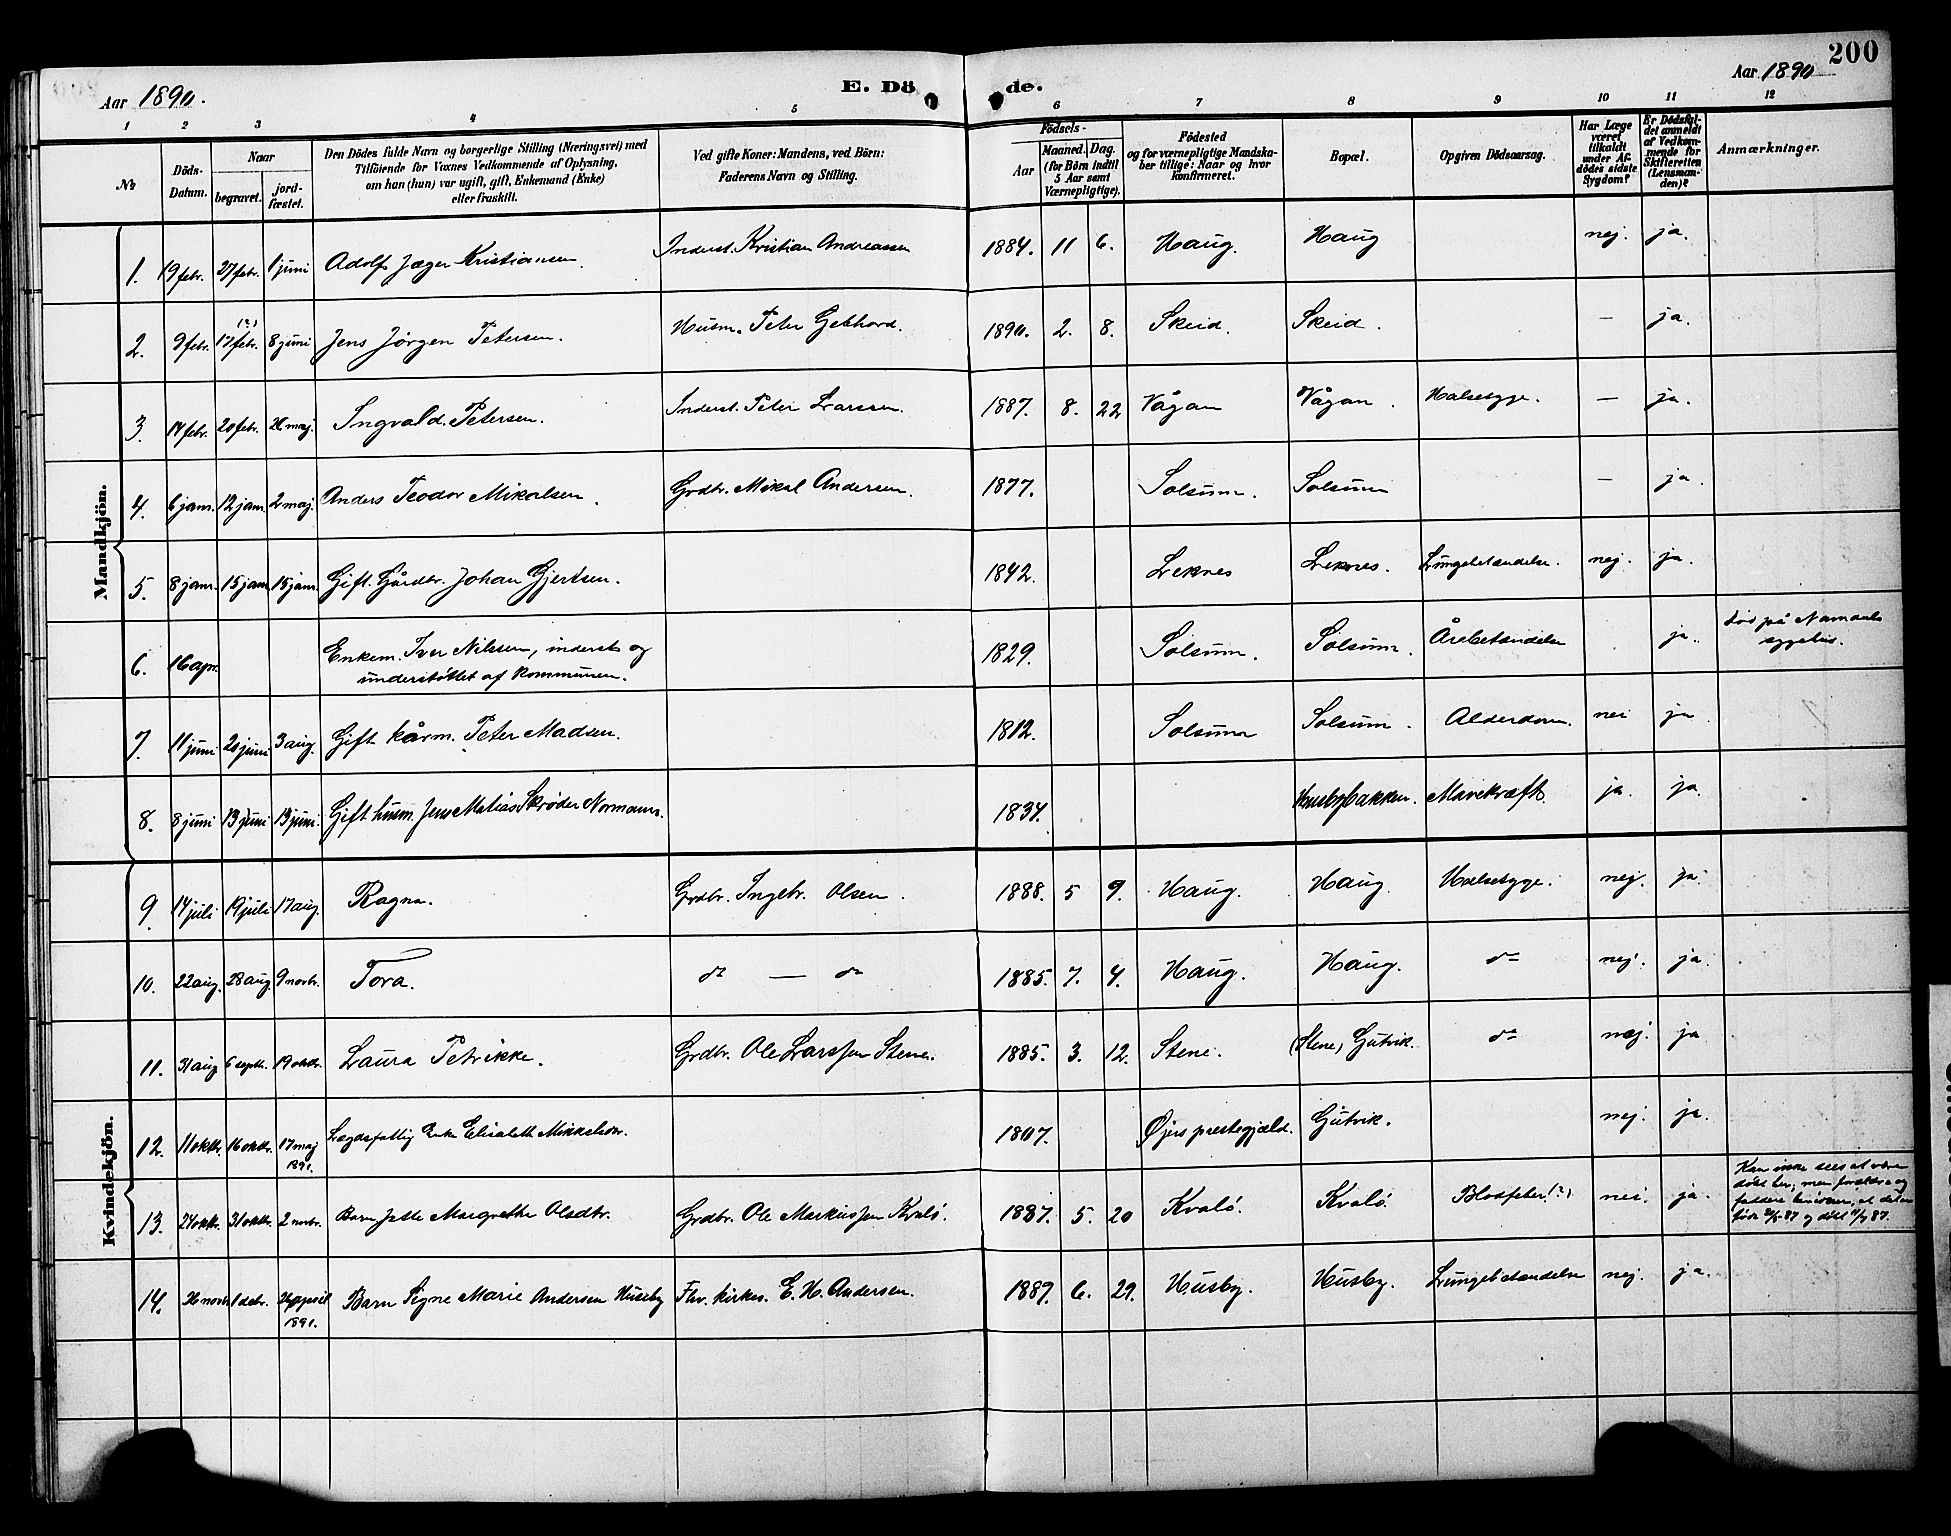 200
Aar 1890.
E. Dö de.
Aar 1890
1 2 3 4 5 6 7 8 9 10 11 12
№
Döds-Datum.
Naar
begravet.
jord-fæstet.
Den Dödes fulde Navn og borgerlige Stilling (Næringsvei) med
Tilföiende for Voxnes Vedkommende af Oplysning,
om han (hun) var ugift, gift, Enkemand (Enke)
eller fraskilt.
Ved gifte Koner: Mandens, ved Börn:
Faderens Navn og Stilling.
Födsels-
Aar
Maaned. Dag.
(for Börn indtil
5 Aar samt
Værnepligtige).
Födested
og for værnepligtige Mandska-
ber tillige: Naar og hvor
konfirmeret.
Bopæl.
Opgiven Dödsaarsag.
Har Læge
været
tilkaldt
under Af-
dödes sidste
Sygdom?
Er Dödsfal-
det anmeldt
af Vedkom-
mende for
Skifteretten
(Lensman-
den)?
Anmærkninger.
Mandkjön.
1. 19 febr. 27 febr. 1 juni Adolf Jæger Kristiansen. Inderst. Kristian Andreassen 1884. 11 6. Haug. Haug nej. ja.
2. 9 febr. 17 febr. (?) 8 juni Jens Jørgen Petersen. Husm. Peter Gebhard. 1890. 2. 8. Skeid. Skeid. — ja.
3. 14 febr. 20 febr. 26 maj. Ingvald Petersen. Inderst. Peter Larssen. 1887. 8. 22 Vågan Vågan. Halsesyge. — ja.
4. 6 janr. 12 janr. 2 maj. Anders Teodor Mikalsen. Grdbr. Mikal Andersen. 1877. Solsum. Solsum — ja.
5. 8 janr. 15 janr. 15 janr. Gift. Gårdbr. Johan Gjertsen. 1842. Leknes Leknes. Lungebetændelse. nej. ja.
6. 16 apr. Enkem. Iver Nilssen, inderst og
understöttet af kommunen. 1829. Solsum. Solsum. Årebetændelse ja. död på Namdals
sygehus.
7. 11 juni 20 juni 3 aug. Gift kårm. Peter Madsen. 1812. Solsum Solsum. Alderdom. nei ja
8. 8 juni 13 juni 13 juni. Gift husm. Jens Matias Skrøder Normann. 1834. Husbybakken. Mavekræft. ja. ja.
Kvindekjön.
9. 14 juli 19 juli 17 aug. Ragna. Grdbr. Ingebr. Olsen. 1888. 5 9. Haug. Haug. Halsesyge. nej. ja.
10. 22 aug. 28 aug. 9 novbr. Tora. do — do 1885. 7. 4. Haug. Haug. do nej. ja.
11. 31 aug 6 septbr. 19 oktbr. Laura Petrikke. Grdbr. Ole Larssen Stene. 1885. 3. 12. Stene. (Stene) Gutvik. do nej. ja
12. 11 oktbr. 16 oktbr. 17 maj
1891. Lægdsfattig Enke Elisabeth Mikkelsdtr. 1807. Øjers prestegjæld. Gutvik. nej. ja.
13. 24 oktr. 31 oktbr. 2 novbr. Barn Jette Margrethe Olsdtr. Grdbr. Ole Markussen Kvalö. 1887. 5. 20 Kvalö. Kvalö. Blodfeber (?) nei. ja. Kan ikke sees at være
döbt her; men forældre og
faddere beviser, at det er
född 20/5 87 og döbt /7 87.
14. 26 novbr. 1 debr. 24 april
1891. Barn Signe Marie Andersen Huseby Fhv. kirkes. E. H. Andersen. 1889. 6. 29. Husby. Husby. Lungebetændelse nej. ja.